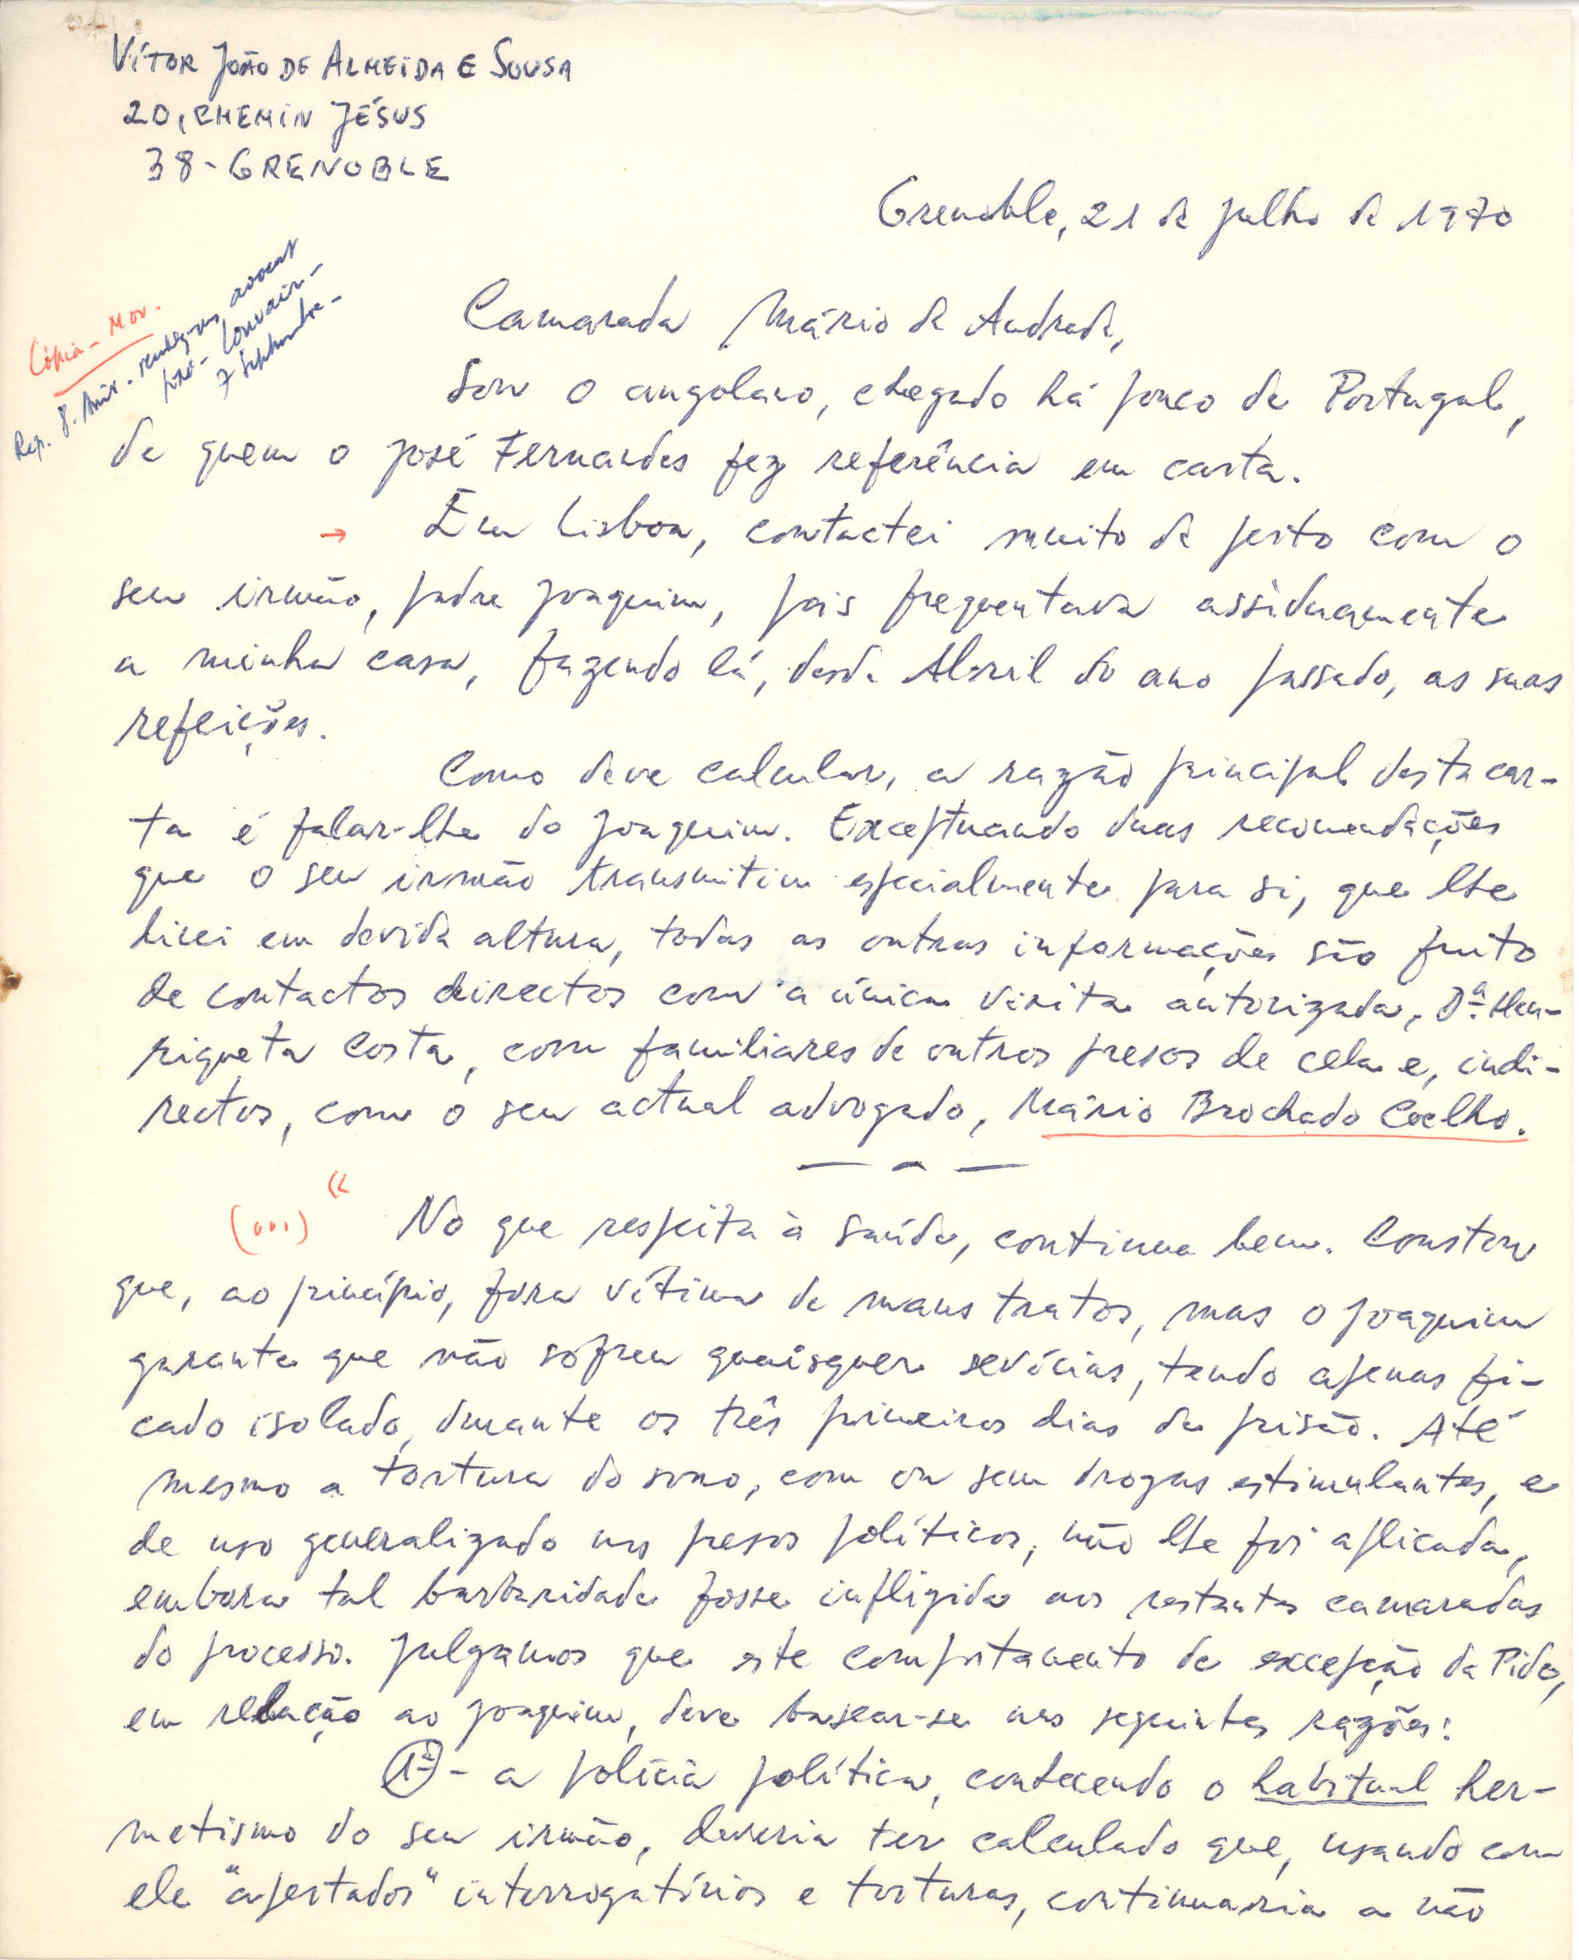 VÍTOR JOÃO DE ALMEIDA E SOUSA
20, CHEMIN JÉSUS
38 - GRENOBLE
Grenoble, 21 de julho de 1970
Cópia - Mov.
Rep. 8. Anix. rendez-vous avocat
pour - Louvain -
7 Septembre -
Camarada Mário de Andrade,
Sou o angolano, chegado há pouco de Portugal,
de quem o José Fernandes fez referência em carta.
→ Em Lisboa, contactei muito de perto com o
seu irmão, padre Joaquim, pois frequentava assiduamente
a minha casa, fazendo lá, desde Abril do ano passado, as suas
refeições.
Como deve calcular, a razão principal desta car-
ta é falar-lhe do Joaquim. Exceptuando duas recomendações
que o seu irmão transmitiu especialmente para si, que lhe
direi em devida altura, todas as outras informações são fruto
de contactos directos com a única visita autorizada, D.ª Hen-
riqueta Costa, com familiares de outros presos de cela e, indi-
rectos, com o seu actual advogado, Mário Brochado Coelho.
(...) « No que respeita à saúde, continua bem. Constou
que, ao princípio, fora vítima de maus tratos, mas o Joaquim
garante que não sofreu quaisquer sevícias, tendo apenas fi-
cado isolado, durante os três primeiros dias da prisão. Até
mesmo a tortura do sono, com ou sem drogas estimulantes, e
de uso generalizado nos presos políticos, não lhe foi aplicada,
embora tal barbaridade fosse infligida aos restantes camaradas
do processo. Julgamos que este comportamento de excepção da Pide,
em relação ao Joaquim, deve basear-se nas seguintes razões:
1ª - a polícia política, conhecendo o habitual her-
metismo do seu irmão, deveria ter calculado que, usando com
ele "apertados" interrogatórios e torturas, continuaria a não